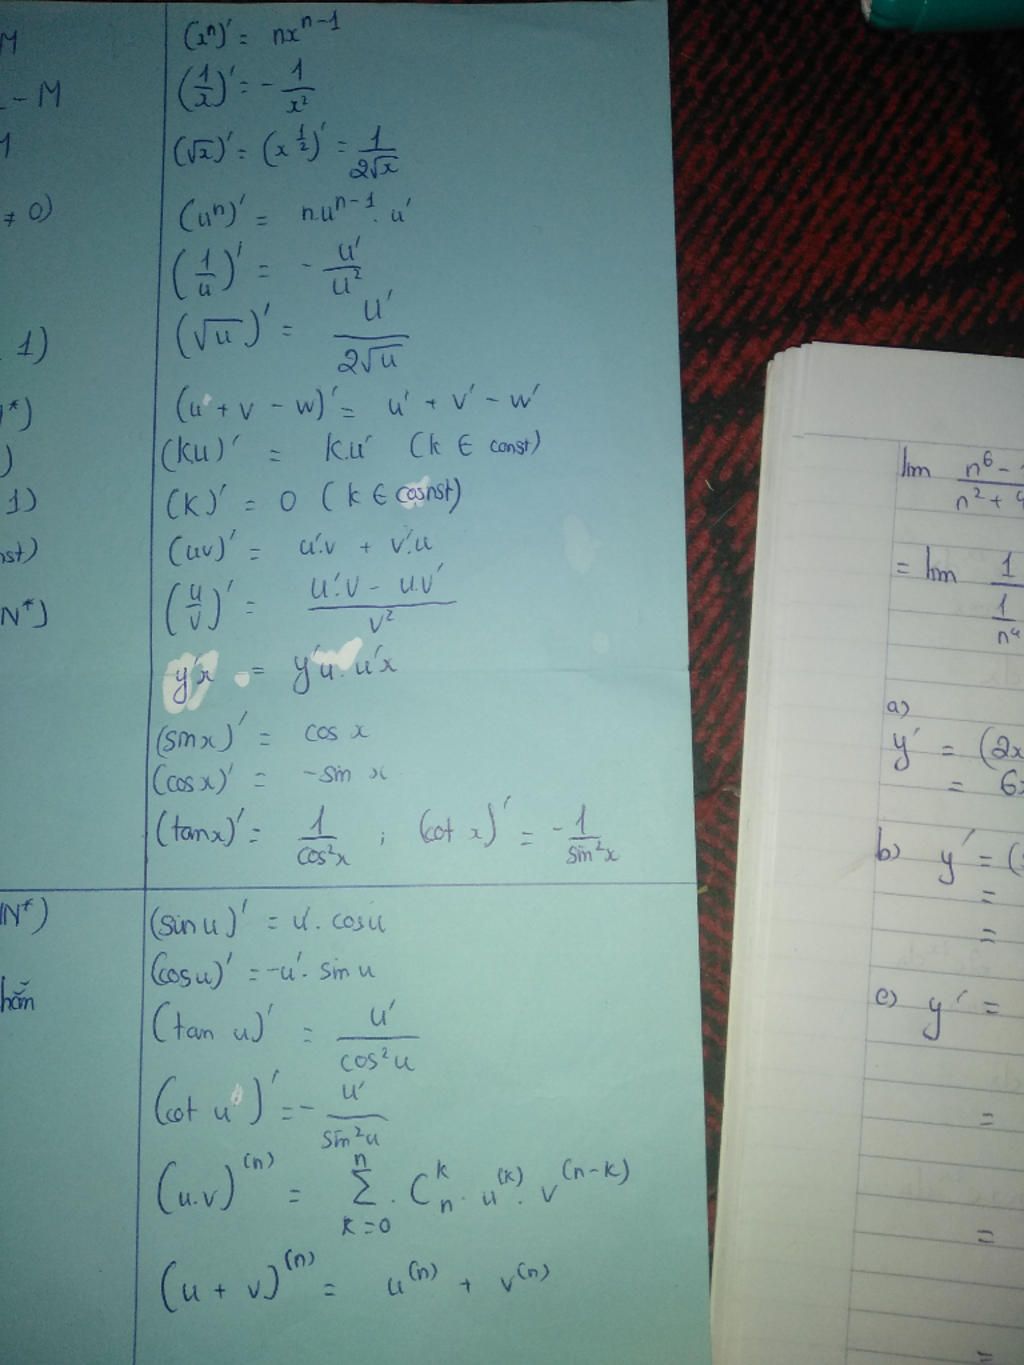 M
- M
≠ 0)
1)
*)
)
1)
nst)
N*)
N*)
hẵn
(xⁿ)' = nxⁿ⁻¹
(1/x)' = - 1/x²
(√x)' = (x^(1/2))' = 1/(2√x)
(uⁿ)' = n.uⁿ⁻¹. u'
(1/u)' = - u'/u²
(√u)' = u'/(2√u)
(u + v - w)' = u' + v' - w'
(ku)' = k.u' (k ∈ const)
(k)' = 0 (k ∈ const)
(uv)' = u'.v + v'.u
(u/v)' = (u'.v - u.v')/v²
y'x = y'u. u'x
(sinx)' = cos x
(cosx)' = -sin x
(tanx)' = 1/cos²x ; (cot x)' = -1/sin²x
(sin u)' = u'. cosu
(cosu)' = -u'. sin u
(tan u)' = u'/cos²u
(cot u)' = - u'/sin²u
(u.v)⁽ⁿ⁾ = ∑_(k=0)^n . C_n^k . u^(k). v^(n-k)
(u + v)^(n) = u^(n) + v^(n)
lim n⁶ -
n² +
= lim 1
1/n⁴
a)
y' = (2x
= 6x
b) y' = (
=
=
c) y' =
=
=
=